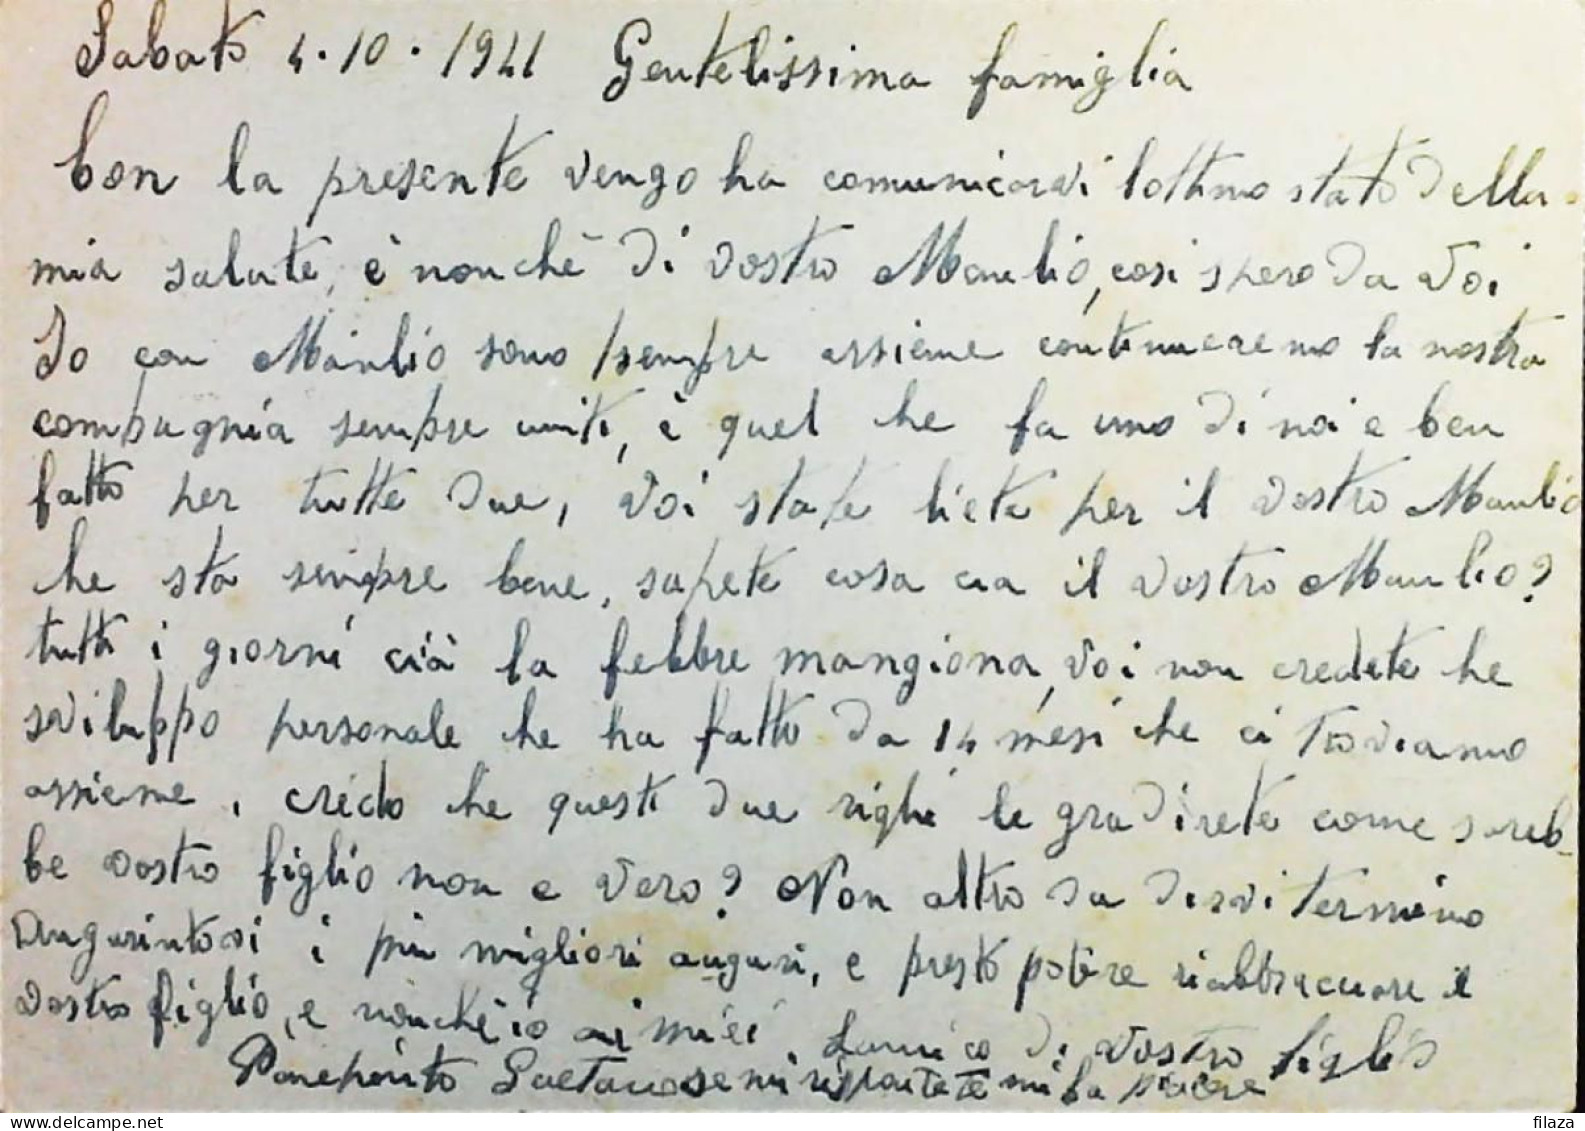 Sabato 4.10.1941 Gentelissima famiglia
Con la presente vengo ha comunicarvi lottimo stato della
mia salute, è nonchè di vostro Manlio, cosi spero da voi
Io con Manlio sono sempre assieme continueremo la nostra
compagnia sempre uniti, è quel he fa uno di noi e ben
fatto per tutte due, voi state liete per il vostro Manlio
he sta sempre bene, sapete cosa cia il vostro Manlio?
tutti i giorni cià la febbre mangiona, voi non credete he
sviluppo personale he ha fatto da 14 mesi che ci troviamo
assieme, credo he questi due righi le gradirete come sareb-
be vostro figlio non e vero? Non altro da dirvi termino
Augurintovi i più migliori auguri, e presto potere riabbracciare il
vostro figlio, e nonchè io ai miei. Lamico di vostro figlio
Gaetano se mi rispontete mi fa piacere